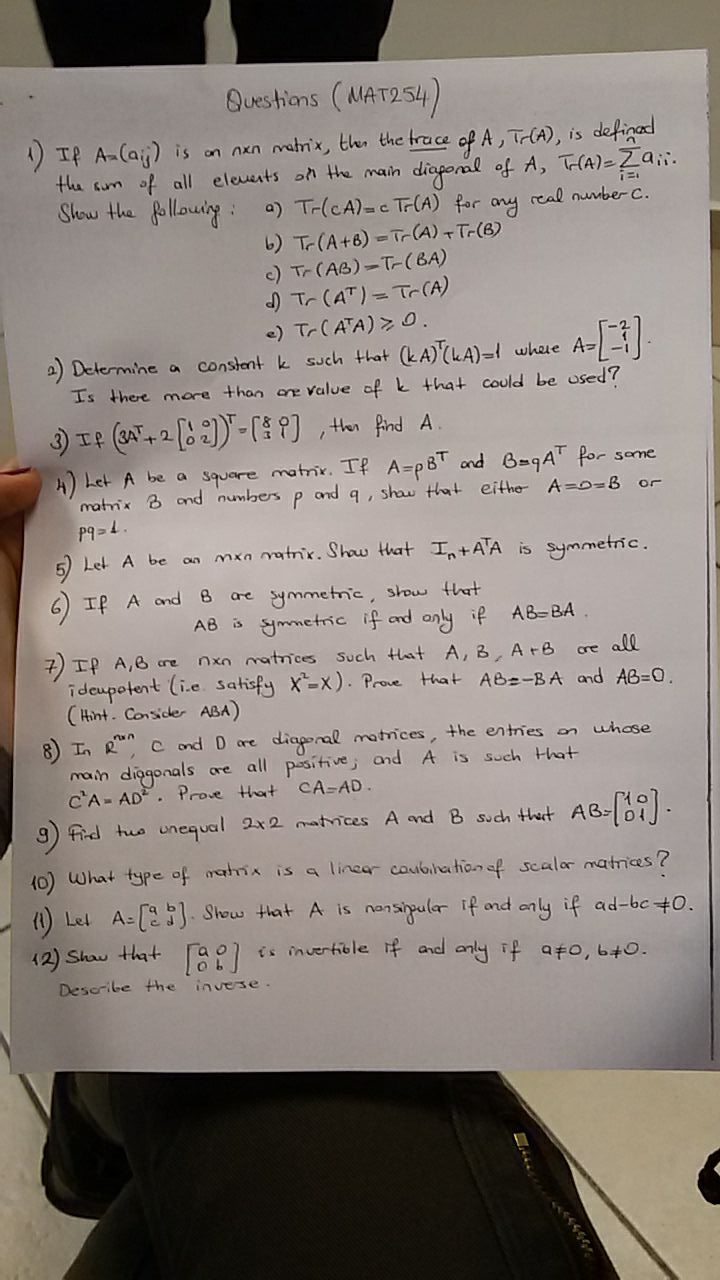 Questions (MAT254)
1) If A=(aij) is an nxn matrix, then the trace of A, Tr(A), is defined
the sum of all elements on the main diagonal of A, Tr(A)=∑ⁿᵢ₌₁ aii.
Show the following: a) Tr(cA)=cTr(A) for any real number c.
b) Tr(A+B)=Tr(A)+Tr(B)
c) Tr(AB)=Tr(BA)
d) Tr(Aᵀ)=Tr(A)
e) Tr(AᵀA)≥0.
2) Determine a constant k such that (kA)ᵀ(kA)=1 where A=[-2 1 -1].
Is there more than one value of k that could be used?
3) If (3Aᵀ+2[1 0 0 2])ᵀ=[8 0 3 1], then find A.
4) Let A be a square matrix. If A=pBᵀ and B=qAᵀ for some
matrix B and numbers p and q, show that either A=0=B or
pq=1.
5) Let A be an mxn matrix. Show that In+AᵀA is symmetric.
6) If A and B are symmetric, show that
AB is symmetric if and only if AB=BA.
7) If A,B are nxn matrices such that A, B, A+B are all
idempotent (i.e. satisfy X²=X). Prove that AB=-BA and AB=0.
(Hint. Consider ABA)
8) In Rⁿˣⁿ, C and D are diagonal matrices, the entries on whose
main diagonals are all positive; and A is such that
C²A=AD². Prove that CA=AD.
9) Find two unequal 2x2 matrices A and B such that AB=[1 0 0 1].
10) What type of matrix is a linear combination of scalar matrices?
11) Let A=[a b c d]. Show that A is nonsingular if and only if ad-bc≠0.
12) Show that [a 0 0 b] is invertible if and only if a≠0, b≠0.
Describe the inverse.